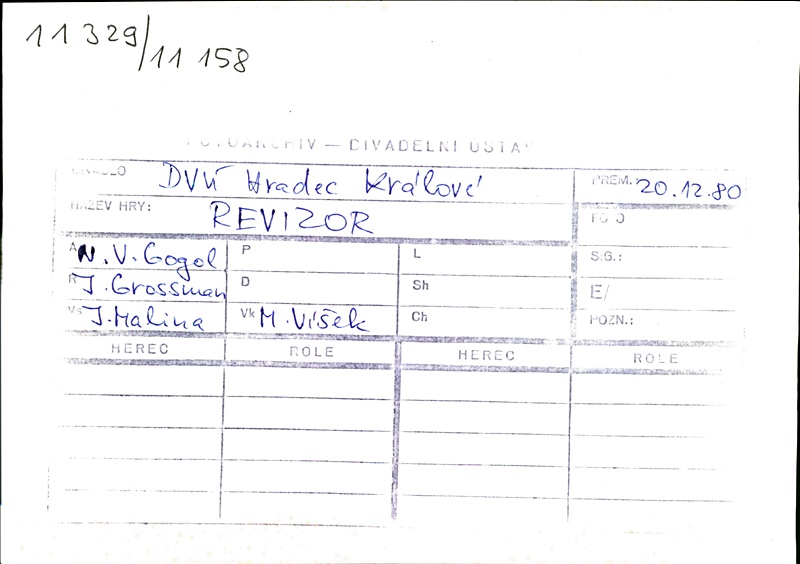 11 329/11 158
FOTOARCHIV — DIVADELNÍ ÚSTAV
DIVADLO DVÚ Hradec Králové PREM. 20.12.80
NÁZEV HRY: REVIZOR FOTO
A N.V. Gogol P L S.G.:
R J. Grossman D Sh E/
Vs J. Malina Vk M. Víšek Ch POZN.:
HEREC ROLE HEREC ROLE